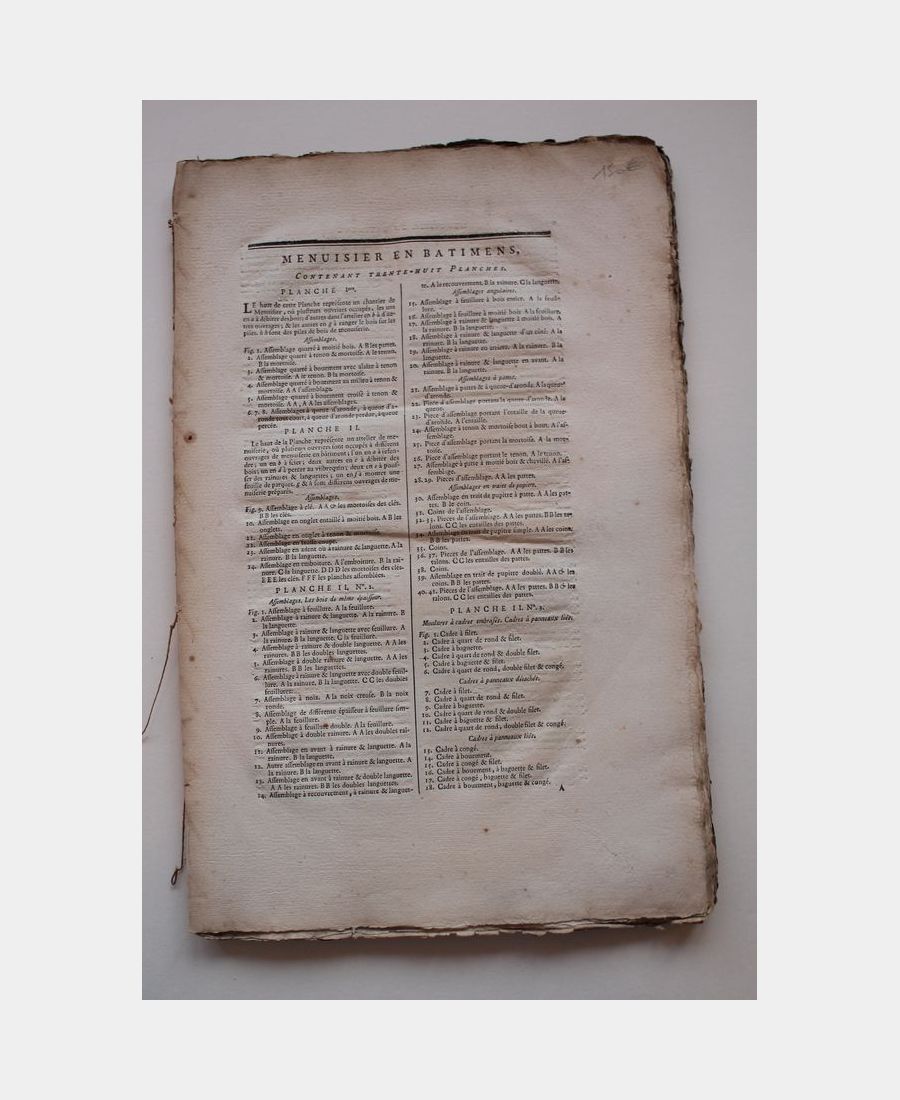 MENUISIER EN BATIMENS,
CONTENANT TRENTE-HUIT PLANCHES.
PLANCHE Iere.
LE haut de cette Planche représente un chantier de
Menuisier, où plusieurs ouvriers occupés, les uns
en a à débiter des bois; d'autres dans l'attelier en b à d'au-
tres ouvrages; & les autres en g à ranger le bois sur les
piles. h h sont des piles de bois de menuiserie.
Assemblages.
Fig. 1. Assemblage quarré à moitié bois. A B les pattes.
2. Assemblage quarré à tenon & mortoise. A le tenon.
B la mortoise.
3. Assemblage quarré à bouement avec à tenon
& mortoise. A le tenon. B la mortoise.
4. Assemblage quarré à bouement au milieu à tenon &
mortoise. A A l'assemblage.
5. Assemblage quarré à bouement croisé à tenon &
mortoise. A A, A A les assemblages.
6. 7. 8. Assemblages à queue d'aronde, à queue d'a-
ronde tout court, à queue d'aronde perdue, à queue
percée.
PLANCHE II.
Le haut de la Planche représente un attelier de me-
nuiserie, où plusieurs ouvriers sont occupés à différens
ouvrages de menuiserie en bâtiment; l'un en a à refen-
dre; un en b à scier; deux autres en c à débiter des
bois; un en d à percer au vilbrequin; deux en e à pous-
ser des rainures & languettes; un en f à monter une
feuille de parquet. g & h sont différens ouvrages de me-
nuiserie préparés.
Assemblages.
Fig. 9. Assemblage à clé. A A & les mortoises des clés.
B B les clés.
10. Assemblage en onglet entaillé à moitié bois. A B les
onglets.
11. Assemblage en onglet à tenon & mortoise.
12. Assemblage en fausse coupe.
13. Assemblage en adent ou à rainure & languette. A la
rainure. B la languette.
14. Assemblage en emboiture. A l'emboiture. B la rai-
nure. C la languette. D D D les mortoises des clés.
E E E les clés. F F F les planches assemblées.
PLANCHE II, N°. 2.
Assemblages. Les bois de même épaisseur.
Fig. 1. Assemblage à feuillure. A la feuillure.
2. Assemblage à rainure & languette. A la rainure. B
la languette.
3. Assemblage à rainure & languette avec feuillure. A
la rainure. B la languette. C la feuillure.
4. Assemblage à rainure & double languette. A A les
rainures. B B les doubles languettes.
5. Assemblage à double rainure & languette. A A les
rainures. B B les languettes.
6. Assemblage à rainure & languette avec double feuil-
lure. A la rainure. B la languette. C C les doubles
feuillures.
7. Assemblage à noix. A la noix creuse. B la noix
ronde.
8. Assemblage de différente épaisseur à feuillure sim-
ple. A la feuillure.
9. Assemblage à feuillure double. A la feuillure.
10. Assemblage à double rainure. A A les doubles rai-
nures.
11. Assemblage en avant à rainure & languette. A la
rainure. B la languette.
12. Autre assemblage en avant à rainure & languette. A
la rainure. B la languette.
13. Assemblage en avant à rainure & double languette.
A A les rainures. B B les doubles languettes.
14. Assemblage à recouvrement, à rainure & languet-
te. A le recouvrement. B la rainure. C la languette.
Assemblages angulaires.
15. Assemblage à feuillure à bois entier. A la feuil-
lure.
16. Assemblage à feuillure à moitié bois. A la feuillure.
17. Assemblage à rainure & languette à moitié bois. A
la rainure. B la languette.
18. Assemblage à rainure & languette d'un côté. A la
rainure. B la languette.
19. Assemblage en arriere. A la rainure. B la
languette.
20. Assemblage à rainure & languette en avant. A la
rainure. B la languette.
Assemblages à pattes.
21. Assemblage à pattes & à queue-d'aronde. A la queue
d'aronde.
22. Piece d'assemblage portant la queue-d'aronde. A la
queue.
23. Piece d'assemblage portant l'entaille de la queue-
d'aronde. A l'entaille.
24. Assemblage à tenon & mortoise bout à bout. A l'as-
semblage.
25. Piece d'assemblage portant la mortoise. A la mor-
toise.
26. Piece d'assemblage portant le tenon. A le tenon.
27. Assemblage à patte à moitié bois & chevillé. A l'as-
semblage.
28. 29. Pieces d'assemblage. A A les pattes.
Assemblages en traits de pupitre.
30. Assemblage en trait de pupitre à patte. A A les pat-
tes. B le coin.
31. Coins de l'assemblage.
32. 33. Pieces de l'assemblage. A A les pattes. B B les ta-
lons. C C les entailles des pattes.
34. Assemblage en trait de pupitre simple. A A les coins.
B B les pattes.
35. Coins.
36. 37. Pieces de l'assemblage. A A les pattes. B B les
talons. C C les entailles des pattes.
38. Coins.
39. Assemblage en trait de pupitre double. A A & les
coins. B B les pattes.
40. 41. Pieces de l'assemblage. A A les pattes. B B & les
talons. C C les entailles des pattes.
PLANCHE II. N°. 3.
Moulures à cadres embrasés. Cadres à panneaux liés.
Fig. 1. Cadre à filet.
2. Cadre à quart de rond & filet.
3. Cadre à baguette.
4. Cadre à quart de rond & double filet.
5. Cadre à baguette & filet.
6. Cadre à quart de rond, double filet & congé.
Cadres à panneaux détachés.
7. Cadre à filet.
8. Cadre à quart de rond & filet.
9. Cadre à baguette.
10. Cadre à quart de rond & double filet.
11. Cadre à baguette & filet.
12. Cadre à quart de rond, double filet & congé.
Cadre à panneaux liés.
13. Cadre à congé.
14. Cadre à bouement.
15. Cadre à congé & filet.
16. Cadre à bouement, à baguette & filet.
17. Cadre à congé, baguette & filet.
18. Cadre à bouement, baguette & congé.
A